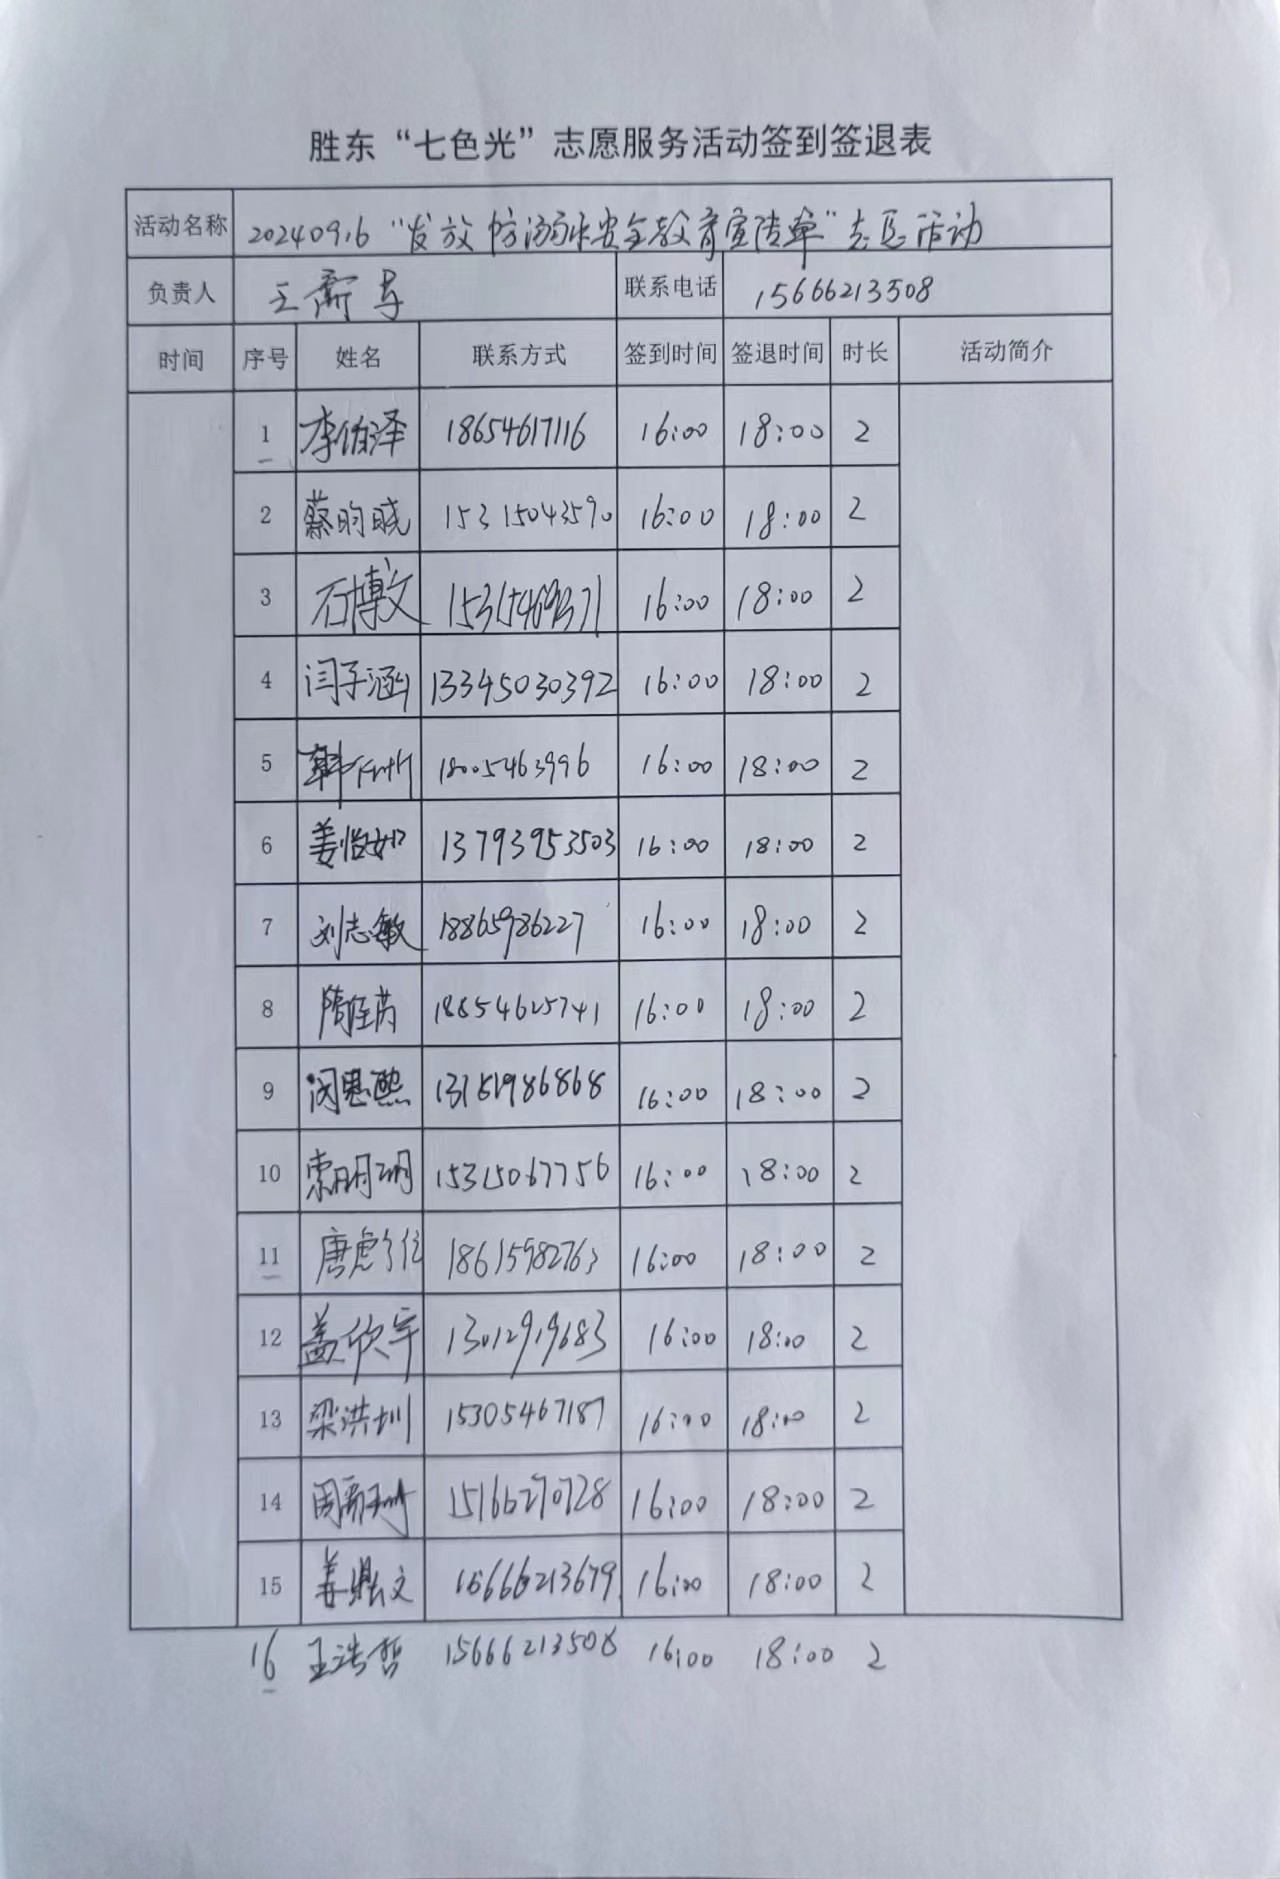 胜东“七色光”志愿服务活动签到签退表
活动名称 20240916 “发放防溺水安全教育宣传单”志愿活动
负责人 王 联系电话 15666213508
时间 序号 姓名 联系方式 签到时间 签退时间 时长 活动简介
1 李伯泽 18654617116 16:00 18:00 2
2 蔡昀晓 15315043590 16:00 18:00 2
3 石博文 16:00 18:00 2
4 闫子涵 13345030392 16:00 18:00 2
5 韩 18005463996 16:00 18:00 2
6 姜怡如 13793953503 16:00 18:00 2
7 刘志敏 18865986227 16:00 18:00 2
8 隋 芮 18854625741 16:00 18:00 2
9 闵思熙 13181986868 16:00 18:00 2
10 索玥玥 15315067756 16:00 18:00 2
11 唐 18615982763 16:00 18:00 2
12 盖欣宇 13012919683 16:00 18:00 2
13 梁洪圳 15305467187 16:00 18:00 2
14 周 15166270728 16:00 18:00 2
15 姜鼎文 15666213679 16:00 18:00 2
16 王浩哲 15666213508 16:00 18:00 2